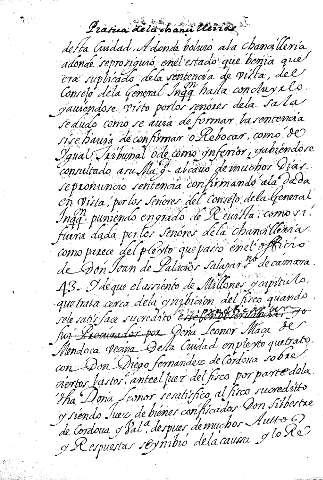 Pratica de la chançilleria
desta Ciudad. Adonde boluio ala chançilleria
adonde se prosiguio en el estado que benia que
era suplicado de la sentencia de vista, del
Consejo de la General Ingqn hasta concluyrlo
y auiendose visto por los señores de la sala
se dudo como se auia de formar la sentencia
si se hauia de confirmar o Rebocar, como de
Igual tribunal o de como ynferior, y abiendose
consultado a su Magd. al cauo de muchos Dias
se pronuncio sentencia confirmando a la dada
en Vista, por los señores del Consejo de la General
Ingqn. puniendo en grado de Reuista: como si
fuera dada por los señores de la chançilleria
como parece del pleyto que paso en el officio
de Don Joan de Palacios Salazar ssno de camara
43. I de que el assiento de Millones, y capitulo,
que trata cerca dela ynybicion del fisco quando
se le satisface su credito
fue Procurador por Dona Leonor Maça de
Mendoca veçina Desta Ciudad en pleyto que trato
con Don Diego fernandez de Cordova sobre
ciertos gastos: ante el Juez del fisco por parte dela
dha Dona Leonor se satisfiço, al fisco su credito
y siendo Juez de bienes confiscados Don Silbestre
de Cordova y Vala despues de muchos Auttos
y Respuestas se ynibio de la causa y lo Re